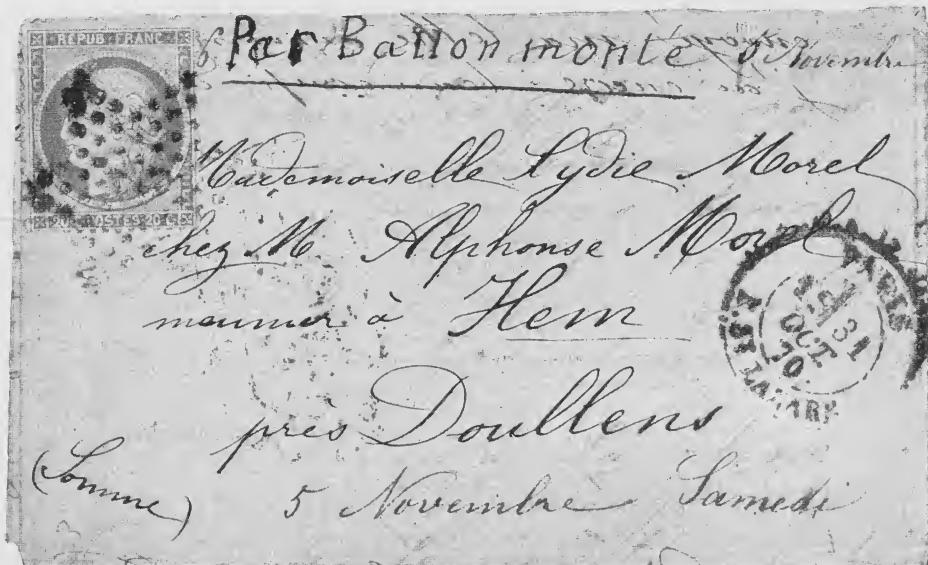 REPUB. FRANC
Par Ballon monté
Novembre
Mademoiselle Lydie Morel
chez M. Alphonse Morel
meunier à Hem
près Doullens
(Somme)
5 Novembre Samedi
20 C POSTES 20 C
PARIS
31
OCT.
70
R. ST LAZARE